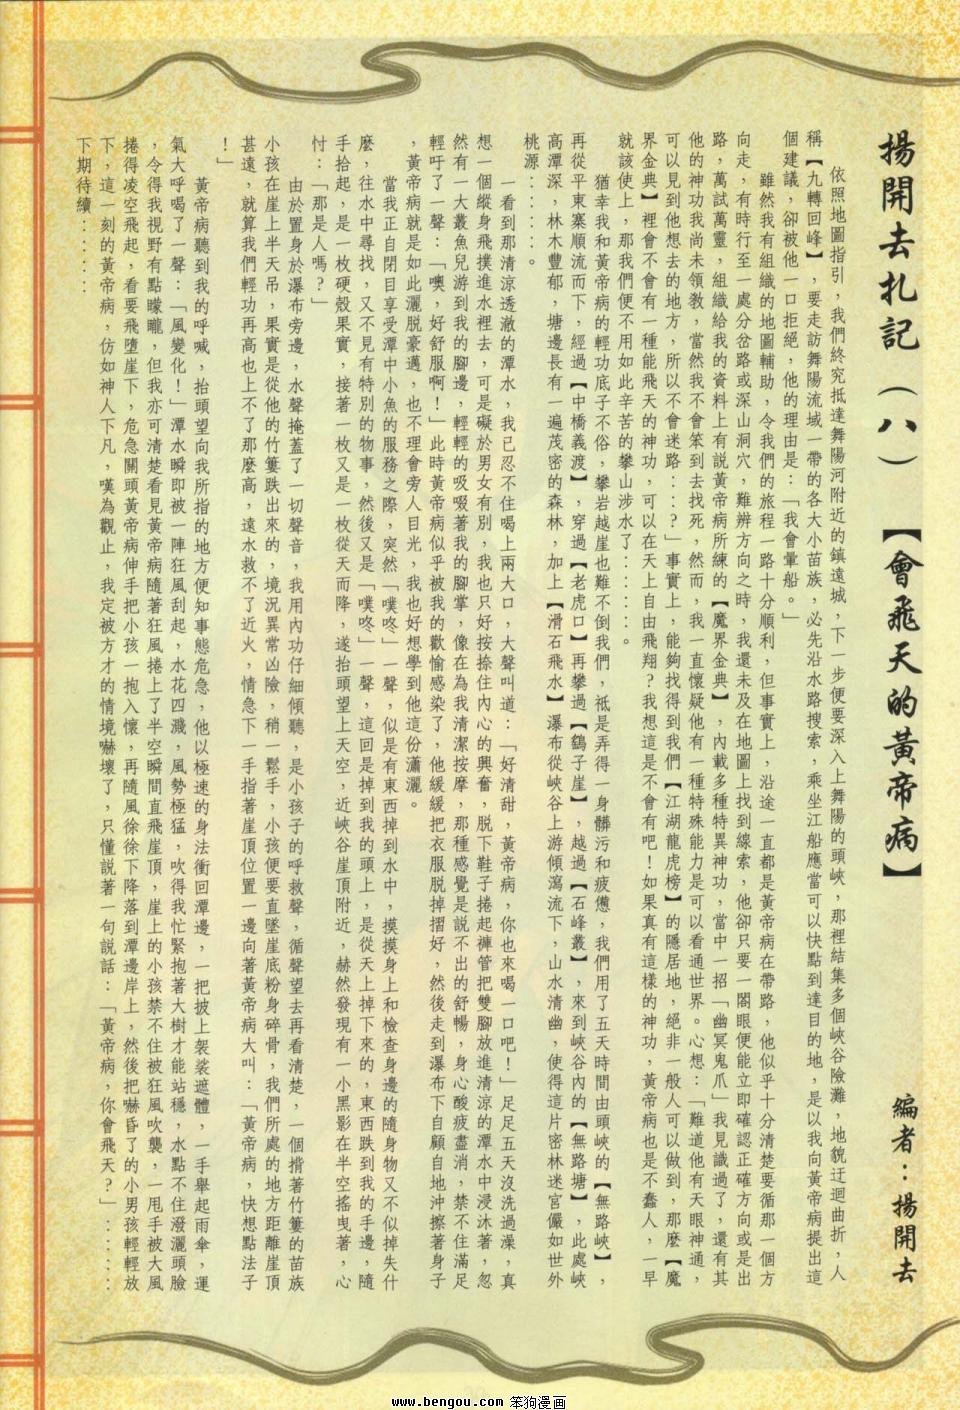 揚開去扎記（八）【會飛天的黃帝病】
編者：揚開去
依照地圖指引，我們終究抵達舞陽河附近的鎮遠城，下一步便要深入上舞陽的頭峽，那裡結集多個峽谷險灘，地貌迂迴曲折，人
稱【九轉回峰】，要走訪舞陽流域一帶的各大小苗族，必先沿水路搜索，乘坐江船應當可以快點到達目的地，是以我向黃帝病提出這
個建議，卻被他一口拒絕，他的理由是：「我會暈船。」
雖然我有組織的地圖輔助，令我們的旅程一路十分順利，但事實上，沿途一直都是黃帝病在帶路，他似乎十分清楚要循那一個方
向走，有時行至一處分岔路或深山洞穴，難辨方向之時，我還未及在地圖上找到線索，他卻只要一閤眼便能立即確認正確方向或是出
路，萬試萬靈，組織給我的資料上有説黃帝病所練的【魔界金典】，內載多種特異神功，當中一招「幽冥鬼爪」我見識過了，還有其
他的神功我尚未領教，當然我不會笨到去找死，然而，我一直懷疑他有一種特殊能力是可以看通世界。心想：「難道他有天眼神通，
可以見到他想去的地方，所以不會迷路：：：？」事實上，能夠找得到我們【江湖龍虎榜】的隱居地，絕非一般人可以做到，那麼【魔
界金典】裡會不會有一種能飛天的神功，可以在天上自由飛翔？我想這是不會有吧！如果真有這樣的神功，黃帝病也是不蠢人，一早
就該使上，那我們便不用如此辛苦的攀山涉水了：：：：：。
猶幸我和黃帝病的輕功底子不俗，攀岩越崖也難不倒我們，衹是弄得一身髒污和疲憊，我們用了五天時間由頭峽的【無路峽】，
再從平東寨順流而下，經過【中橋義渡】，穿過【老虎口】再攀過【鶴子崖】，越過【石峰叢】，來到峽谷內的【無路塘】，此處峽
高潭深，林木豐郁，塘邊長有一遍茂密的森林，加上【滑石飛水】瀑布從峽谷上游傾瀉流下，山水清幽，使得這片密林迷宮儼如世外
桃源：：：：：。
一看到那清涼透澈的潭水，我已忍不住喝上兩大口，大聲叫道：「好清甜，黃帝病，你也來喝一口吧！」足足五天沒洗過澡，真
想一個縱身飛撲進水裡去，可是礙於男女有別，我也只好按捺住內心的興奮，脫下鞋子捲起褲管把雙腳放進清涼的潭水中浸沐著，忽
然有一大叢魚兒游到我的腳邊，輕輕的吸啜著我的腳掌，像在為我清潔按摩，那種感覺是說不出的舒暢，身心酸疲盡消，禁不住滿足
輕吁了一聲：「噢，好舒服啊！」此時黃帝病似乎被我的歡愉感染了，他緩緩把衣服脱掉摺好，然後走到瀑布下自顧自地沖擦著身子
，黃帝病就是如此灑脱豪邁，也不理會旁人目光，我也好想學到他這份瀟灑。
當我正自閉目享受潭中小魚的服務之際，突然「噗咚」一聲，似是有東西掉到水中，摸摸身上和檢查身邊的隨身物又不似掉失什
麼，往水中尋找，又不見有特別的物事，然後又是「噗咚」一聲，這回是掉到我的頭上，是從天上掉下來的，東西跌到我的手邊，隨
手拾起，是一枚硬殼果實，接著一枚又是一枚從天而降，遂抬頭望上天空，近峽谷崖頂附近，赫然發現有一小黑影在半空搖曳著，心
忖：「那是人嗎？」
由於置身於瀑布旁邊，水聲掩蓋了一切聲音，我用內功仔細傾聽，是小孩子的呼救聲，循聲望去再看清楚，一個揹著竹簍的苗族
小孩在崖上半天吊，果實是從他的竹簍跌出來的，境況異常凶險，稍一鬆手，小孩便要直墜崖底粉身碎骨，我們所處的地方距離崖頂
甚遠，就算我們輕功再高也上不了那麼高，遠水救不了近火，情急下一手指著崖頂位置一邊向著黃帝病大叫：「黃帝病，快想點法子
！」
黃帝病聽到我的呼喊，抬頭望向我所指的地方便知事態危急，他以極速的身法衝回潭邊，一把披上袈裟遮體，一手舉起雨傘，運
氣大呼喝了一聲：「風變化！」潭水瞬即被一陣狂風刮起，水花四濺，風勢極猛，吹得我忙緊抱著大樹才能站穩，水點不住潑灑頭臉
，令得我視野有點矇矓，但我亦可清楚看見黃帝病隨著狂風捲上了半空瞬間直飛崖頂，崖上的小孩禁不住被狂風吹襲，一甩手被大風
捲得凌空飛起，看要飛墮崖下，危急關頭黃帝病伸手把小孩一抱入懷，再隨風徐徐下降落到潭邊岸上，然後把嚇昏了的小男孩輕輕放
下，這一刻的黃帝病，仿如神人下凡，嘆為觀止，我定被方才的情境嚇壞了，只懂説著一句説話：「黃帝病，你會飛天？」：：：：：
下期待續：：：：：
www.bengou.com 笨狗漫画